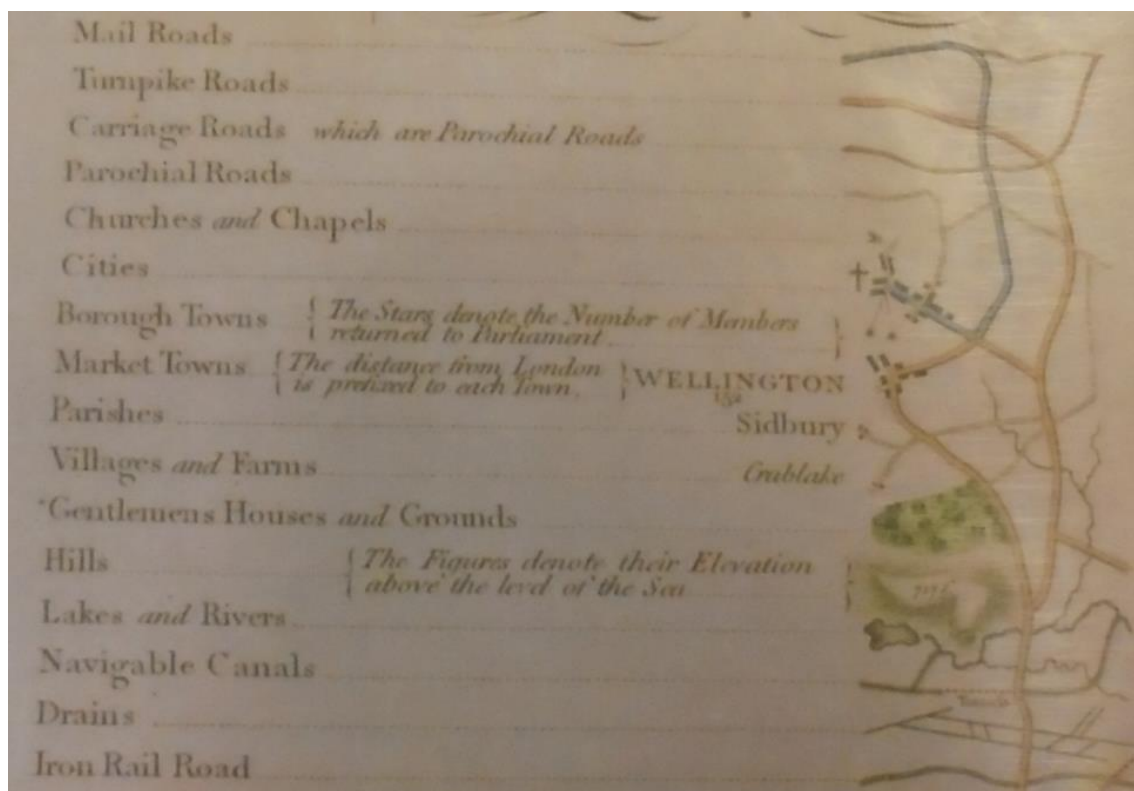 Mail Roads
Turnpike Roads
Carriage Roads which are Parochial Roads
Parochial Roads
Churches and Chapels
Cities
Borough Towns { The Stars denote the Number of Members
returned to Parliament }
Market Towns { The distance from London
is prefixed to each Town. } WELLINGTON
152
Parishes Sidbury
Villages and Farms Crublake
Gentlemens Houses and Grounds
Hills { The Figures denote their Elevation
above the level of the Sea }
Lakes and Rivers
Navigable Canals
Drains
Iron Rail Road